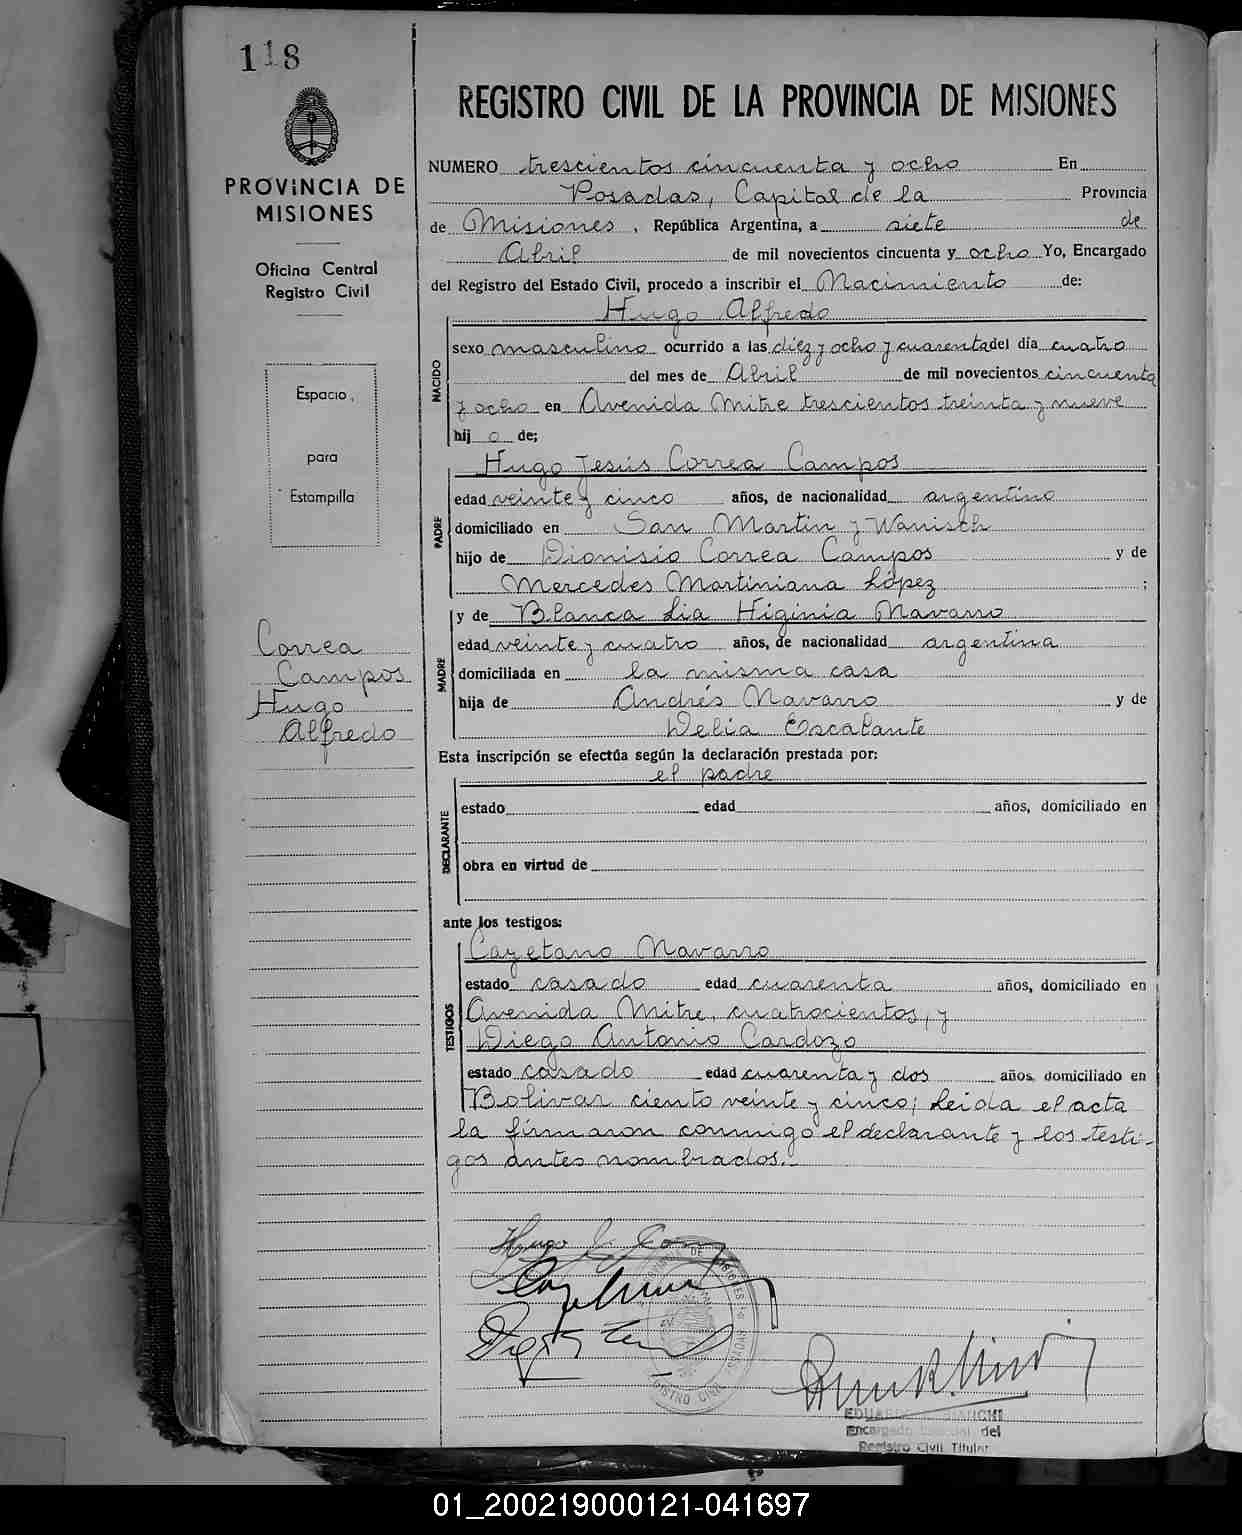 118
PROVINCIA DE
MISIONES
Oficina Central
Registro Civil
Espacio
para
Estampilla
Correa
Campos
Hugo
Alfredo
REGISTRO CIVIL DE LA PROVINCIA DE MISIONES
NUMERO trescientos cincuenta y ocho En
Posadas, Capital de la Provincia
de Misiones, República Argentina, a siete de
Abril de mil novecientos cincuenta y ocho Yo, Encargado
del Registro del Estado Civil, procedo a inscribir el Nacimiento de:
Hugo Alfredo
NACIDO
sexo masculino ocurrido a las diez y ocho y cuarenta del día cuatro
del mes de Abril de mil novecientos cincuenta
y ocho en Avenida Mitre trescientos treinta y nueve
hijo de;
Hugo Jesús Correa Campos
PADRE
edad veinte y cinco años, de nacionalidad argentino
domiciliado en San Martin y Wanisch
hijo de Dionisio Correa Campos y de
Mercedes Martiniana López ;
y de Blanca Lia Higinia Navarro
MADRE
edad veinte y cuatro años, de nacionalidad argentina
domiciliada en la misma casa
hija de Andrés Navarro y de
Delia Escalante
Esta inscripción se efectúa según la declaración prestada por:
el padre
DECLARANTE
estado edad años, domiciliado en
obra en virtud de
ante los testigos:
Cayetano Navarro
TESTIGOS
estado casado edad cuarenta años, domiciliado en
Avenida Mitre, cuatrocientos, y
Diego Antonio Cardozo
estado casado edad cuarenta y dos años, domiciliado en
Bolivar ciento veinte y cinco; Leida el acta
la firmaron conmigo el declarante y los testi-
gos antes nombrados.-
Hugo J.
REGISTRO CIVIL
EDUARDO BIANCHI
Encargado del
Registro Civil Titular
01_200219000121-041697